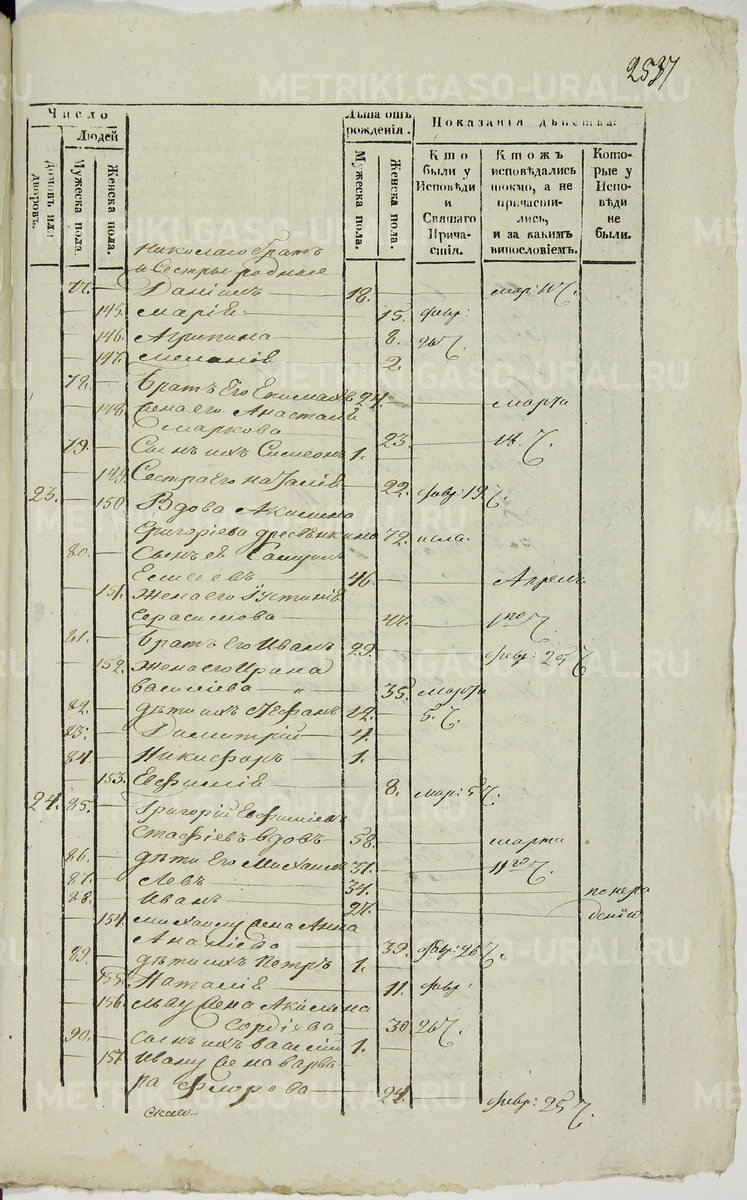 2537
Число
Людей
Лѣта отъ рожденія.
Показанія дѣйства:
Домовъ или дворовъ.
Мужеска пола.
Женска пола.
Мужеска пола.
Женска пола.
Кто были у Исповѣди и Святаго Причастія.
Ктожъ исповѣдались токмо, а не причастились, и за какимъ винословіемъ.
Которые у Исповѣди не были.
Николаю братъ
и сестры родные
77. Даніилъ 18. мар:
145. Марія 15. февр:
146. Агрипина 8. 26
147. Меланія 2.
78. братъ Его 24. марта
148. жена его Анастасія
Маркова 23. 18.
79. Сынъ ихъ Симеонъ 1.
149. Сестра его Наталія 22. февр: 19
23. 150. Вдова Акилина
Григоріева 72.
80. Сынъ ея
Елисеевъ 46. Апреля
151. жена его Іустинія
Герасимова 1го
81. братъ Его Иванъ 29. февр: 25
152. жена его Ирина
Василіева 35. марта
82. дѣти ихъ Стефанъ 12. 5.
83. Димитрій 4.
84. Никифоръ 1.
153. Евфимія 8. мар: 5
24. 85. Григорій Евфиміевъ
вдовъ 58. марта
86. дѣти Его Михаилъ 37. 11го
87. Левъ 34. понера
88. Иванъ 27. дѣнію
154. Михаилу жена Анна
Ананіева 39. февр: 26
89. дѣти ихъ Петръ 1.
155. Наталія 11. февр:
156. Льву жена Акилина
Гордіева 30. 26
90. сынъ ихъ Василій 1.
157. Ивану жена Варва
ра Флорова 24. февр: 25